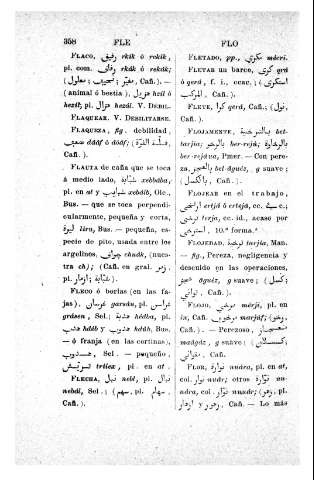 358 FLE FLO
FLACO, رقيق rkik ó rekik,
pl. com. رقاق rkák ó rekák;
(معلول; نحيف; مغير, Cañ.). —
(animal ó bestia), هزيل hzil ó
hezil; pl. هزال hezál. V. DEBIL.
FLAQUEAR. V. DEBILITARSE.
FLAQUEZA, fig. debilidad,
ضعف ddáf ó dôáf; (قلّة القوة,
Cañ.).
FLAUTA de caña que se toca
á medio lado, شبّابة xebbába,
pl. en at y شبابيب xebáib, Olc.,
Bus. — que se toca perpendi-
cularmente, pequeña y corta,
ليرة lira, Bus. — pequeña, es-
pecie de pito, usada entre los
argelinos, جواق chuák, (nues-
tra ch); (Cañ. en gral. زمر,
pl. ازمار; شبّابة).
FLECO ó borlas (en las fa-
jas), غرسان garsán, pl. غراسن
grásen, Sel.; هدبة hédba, pl.
هدب hddb y هدوب hdúb, Bus.
— ó franja (en las cortinas),
هدوب, Sel. — pequeño,
pl. en at.
FLECHA, نبل nebl, pl. نبال
nebál, Sel.; (سهم, pl. سهام,
Cañ.).
FLETADO, pp., مكري mécri.
FLETAR un barco, كرى qrá
ó qerá, f. i., ecuc.; (كرى
المركب, Cañ.).
FLETE, كراء qrá, Cañ., (نول,
Cañ.).
FLOJAMENTE, بالترخية bet-
tarjía; بالرخاوة ber-rejá;
ber-rejáua, Pmer. — Con pere-
za, بالعجز bel-âguéz, g suave;
(بالكسل, Cañ.).
FLOJEAR en el trabajo,
ارتخى ertjá ó ertejá, cc. في c.;
ترخى terja, cc. id., acaso por
استرخى, 10.ª forma.ª
FLOJEDAD, ترخية tarjía, Man.
— fig., Pereza, negligencia y
descuido en las operaciones,
عجز âguéz, g suave; (كسل,
تواني, Cañ.).
FLOJO, مرخي mérji, pl. en
in, Cañ. مرخوف marjúf; (رخو,
Cañ.). — Perezoso,
maâgáz, g suave; (كسلان,
Cañ.
FLOR, نوّارة nuára, pl. en at,
col. نوار nuár; otros نوّارة nu-
uádra, col. نوار nuár; (زهرة, pl.
زهور y ازهار, Cañ.). — Lo más